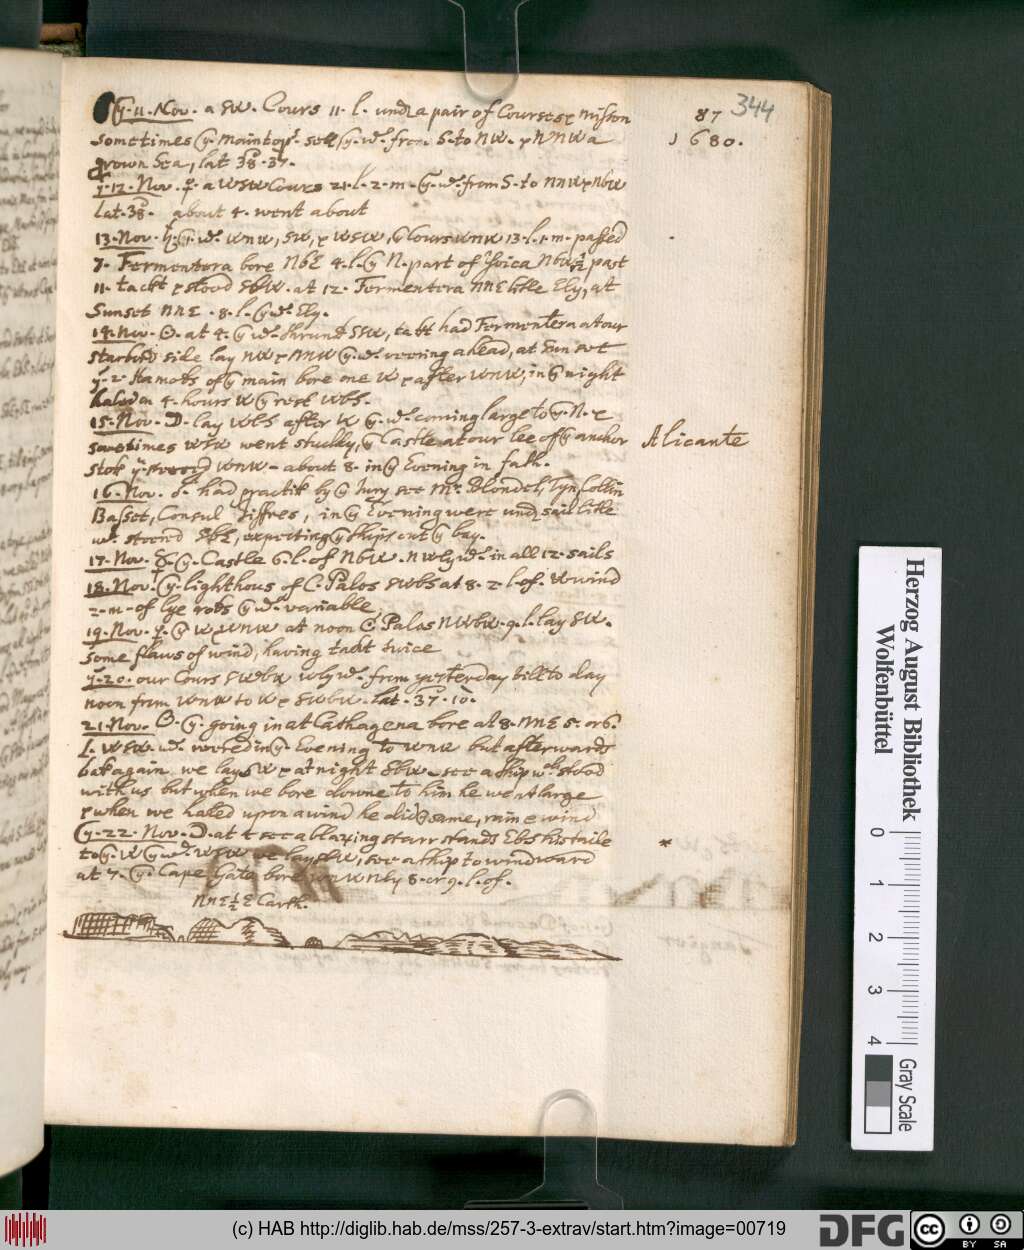 344
87
1680.
ÿ. 11. Nov. a SW. Cours 11. l. undr a pair of Courses & misson
sometimes ÿ maintops. sett ÿ. wd. from S. to NW. & NNW a
grown Sea, lat 38. 37.
ÿ. 12. Nov. ♀. a WSW Cours 21. l. 2. m. ÿ. wd. from S. to NNW & NbW
Lat. 38. about 4. went about
13. Nov. ♄. ÿ. wd. WNW, SW, & WSW, ÿ Cours WNW 13. l. 1. m. passed
7. Fermentera bore NbE 4. l. ÿ N. part of Yvica NbW ½ past
11. tackt & stood SbW. at 12. Fermentera NNE litle Ely, at
Sunset NNE. 8. l. ÿ wd. Ely.
14. Nov. ☉. at 4. ÿ wd. shrunk SSW, takt had Fermentera at our
starbord side lay NW & NNW ÿ. wd. veering ahead, at Sun set
ÿ. 2. Hamots of ÿ main bore one W & after WNW, in ÿ night
haled in 4. hours W ÿ rest WbS.
15. Nov. ☽. lay WbS after W ÿ wd. coming large to ÿ. N. &
sometimes WSW went studdy, ÿ Castle at our lee of ÿ anchor
Alicante
stok WNW. about 8. in ÿ Evening in fath.
16. Nov. ♂. had practik by ÿ Jury see Mr. Blondel, Tyn, Collin
Basset, Consul Jiffres, in ÿ Evening were undr sail litle
wd. steered SbE, expecting ÿ ships out ÿ bay.
17. Nov. ☿. ÿ. Castle 6. l. of NbW. NWly wd. in all 12. sails
18. Nov. ÿ. lighthous of C. Palos SWbS at 8. 2. l. of. W wind
2. m. of lye rocks ÿ wd. variable,
19. Nov. ♀. ÿ W & WNW at noon C. Palos NWbW. 9. l. lay SW.
some flaws of wind, having takt twice
ÿ. 20. our Cours SWbW Wly wd. from yesterday till to day
noon from WNW to W & SWbW. lat. 37. 10.
21. Nov. ☉. ÿ. going in at Cathagena bore at 8. NNE 5. or 6.
l. WSW. wd. veered in ÿ. Evening to WNW but afterwards
bak again. we lay SW & at night SbW. see a ship wch stood
with us but when we bore downe to him he went large
& when we haled upon a wind he did ÿ same, rain & wind
ÿ. 22. Nov. ☽. at 4 see a blazing starr stands EbS his taile
*
to ÿ. W ÿ wd. WSW we lay SW, see a ship to windward
at 7. ÿ. Cape Gate bore WNW Nly 8. or 9. l. of.
NNE ½ E Carth.
Herzog August Bibliothek
Wolfenbüttel
0 1 2 3 4
Gray Scale
(c) HAB http://diglib.hab.de/mss/257-3-extrav/start.htm?image=00719
DFG
cc BY SA